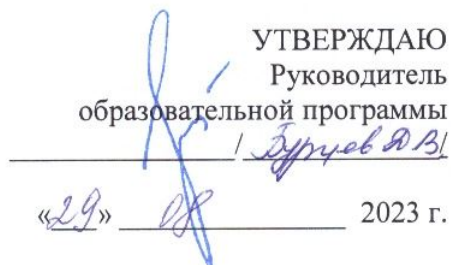 УТВЕРЖДАЮ
Руководитель
образовательной программы
/ Бурцев Д В/
«29» 08 2023 г.